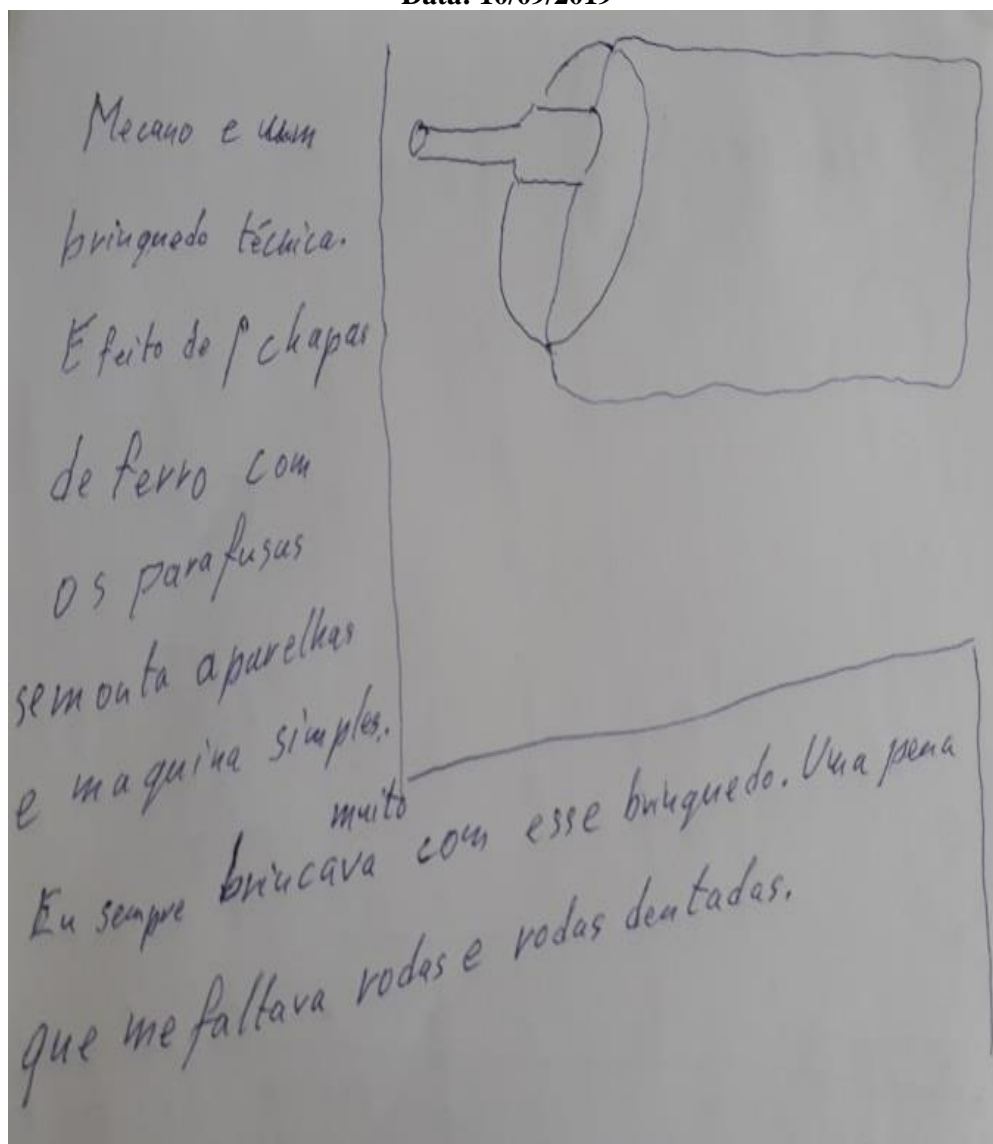 Data: 10/09/2019
Mecano e um
brinquedo técnica.
E feito de chapas
de ferro com
os parafusus
semonta aparelhas
e maquina simples.
muito
Eu sempre brincava com esse brinquedo. Uma pena
que me faltava rodas e rodas dentadas.